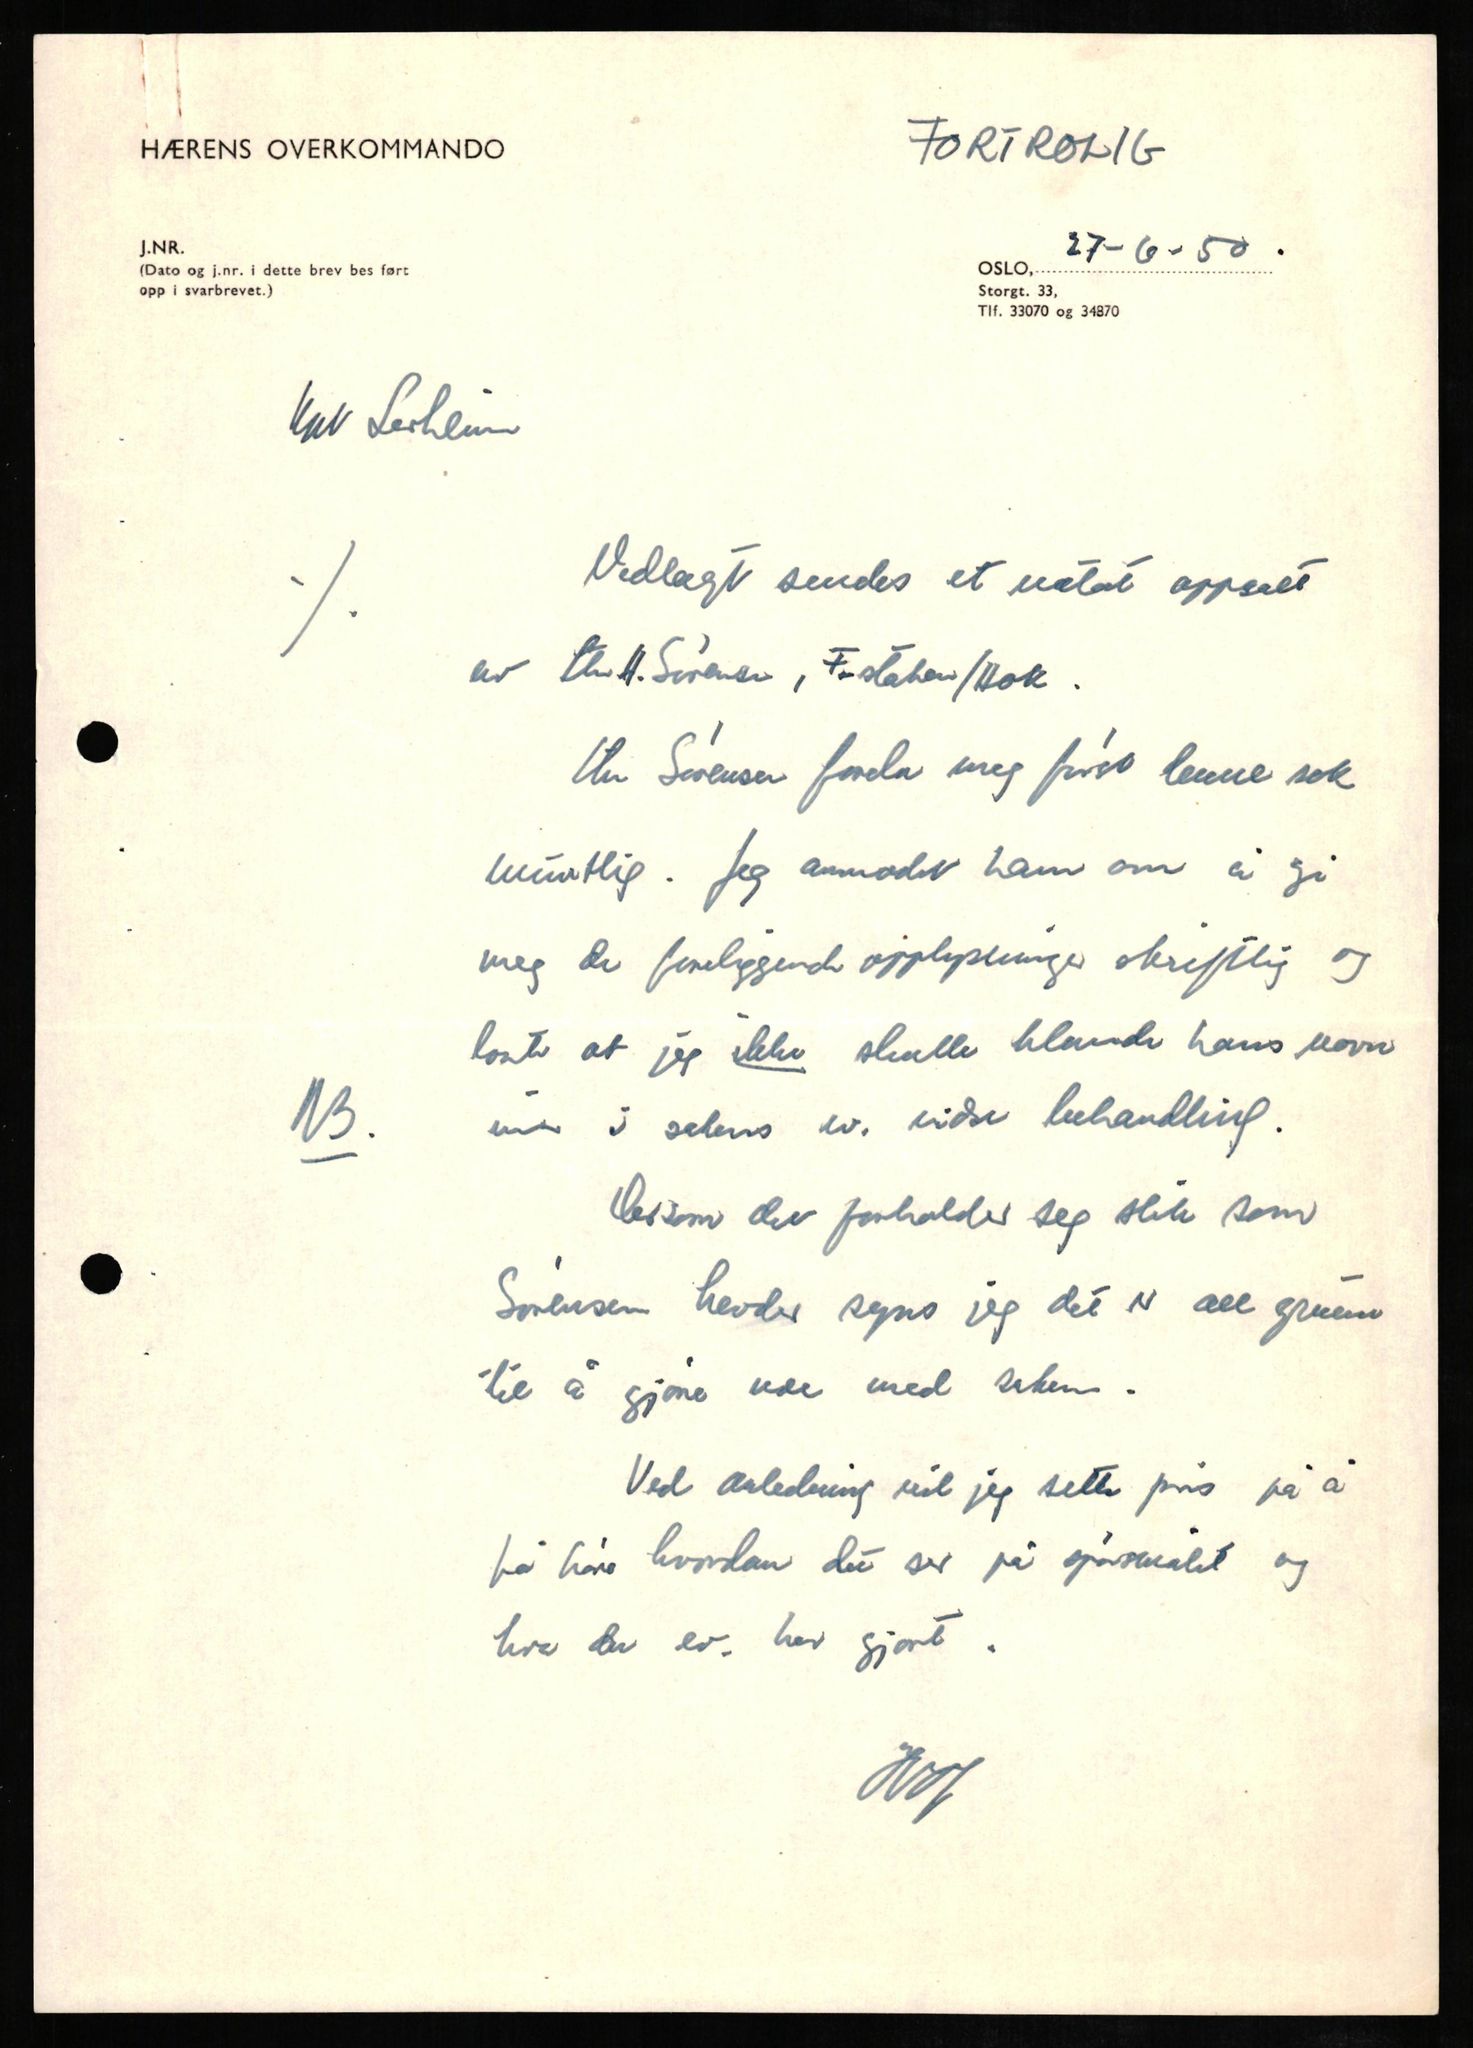 HÆRENS OVERKOMMANDO
FORTROLIG
J.NR.
(Dato og j.nr. i dette brev bes ført
opp i svarbrevet.)
27-6-50.
OSLO,
Storgt. 33,
Tlf. 33070 og 34870
Vedlagt sendes et notat oppsatt
av Hr H. Sörensen, F-staben/HOK.
Hr Sörensen forela meg först denne sak
muntlig. Jeg anmodet ham om å gi
meg de foreliggende opplysninger skriftlig og
lovte at jeg ikke skulle blande hans navn
NB.
inn i sakens ev. videre behandling.
Dersom det forholder seg slik som
Sörensen hevder synes jeg det er all grunn
til å gjöre noe med saken.
Ved anledning vil jeg sette pris på å
få höre hvordan du ser på spörsmålet og
hva du ev. har gjort.